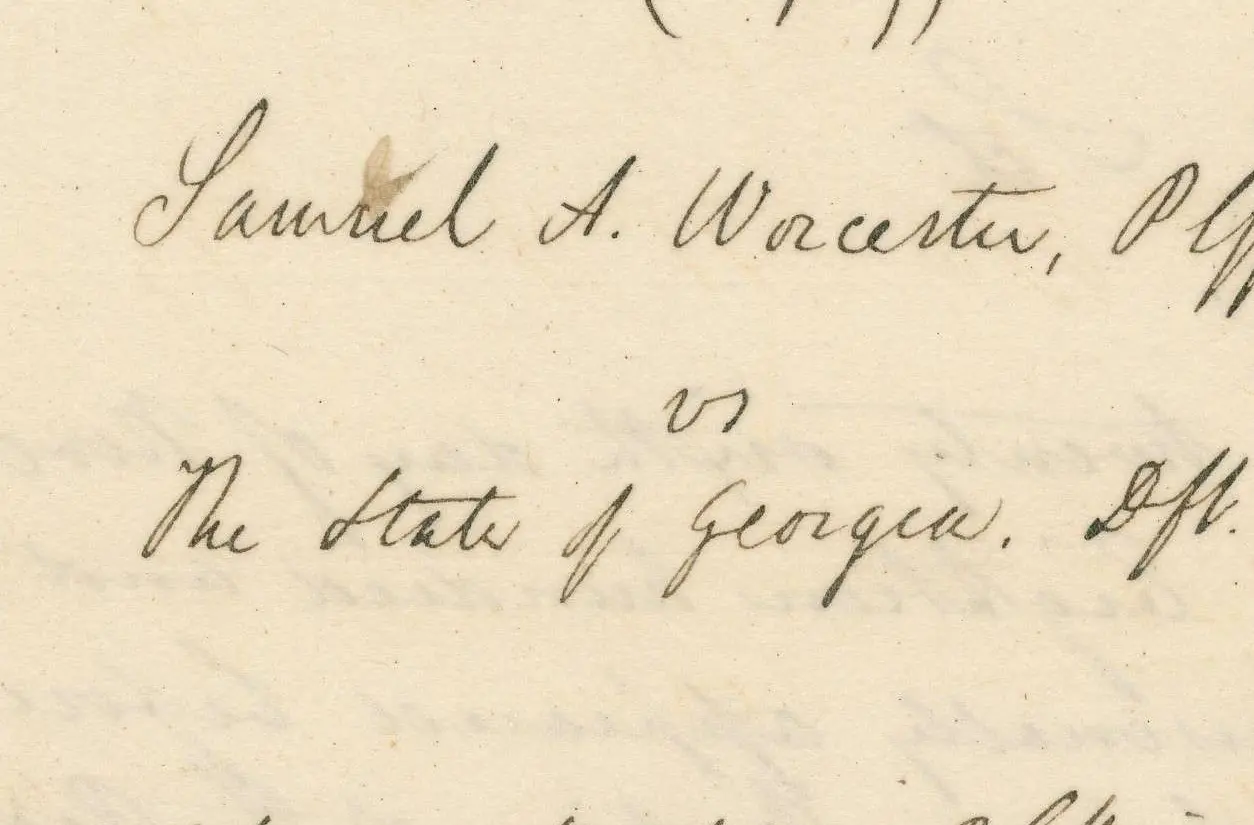 Samuel A. Worcester, Plff
vs
The State of Georgia. Dft.